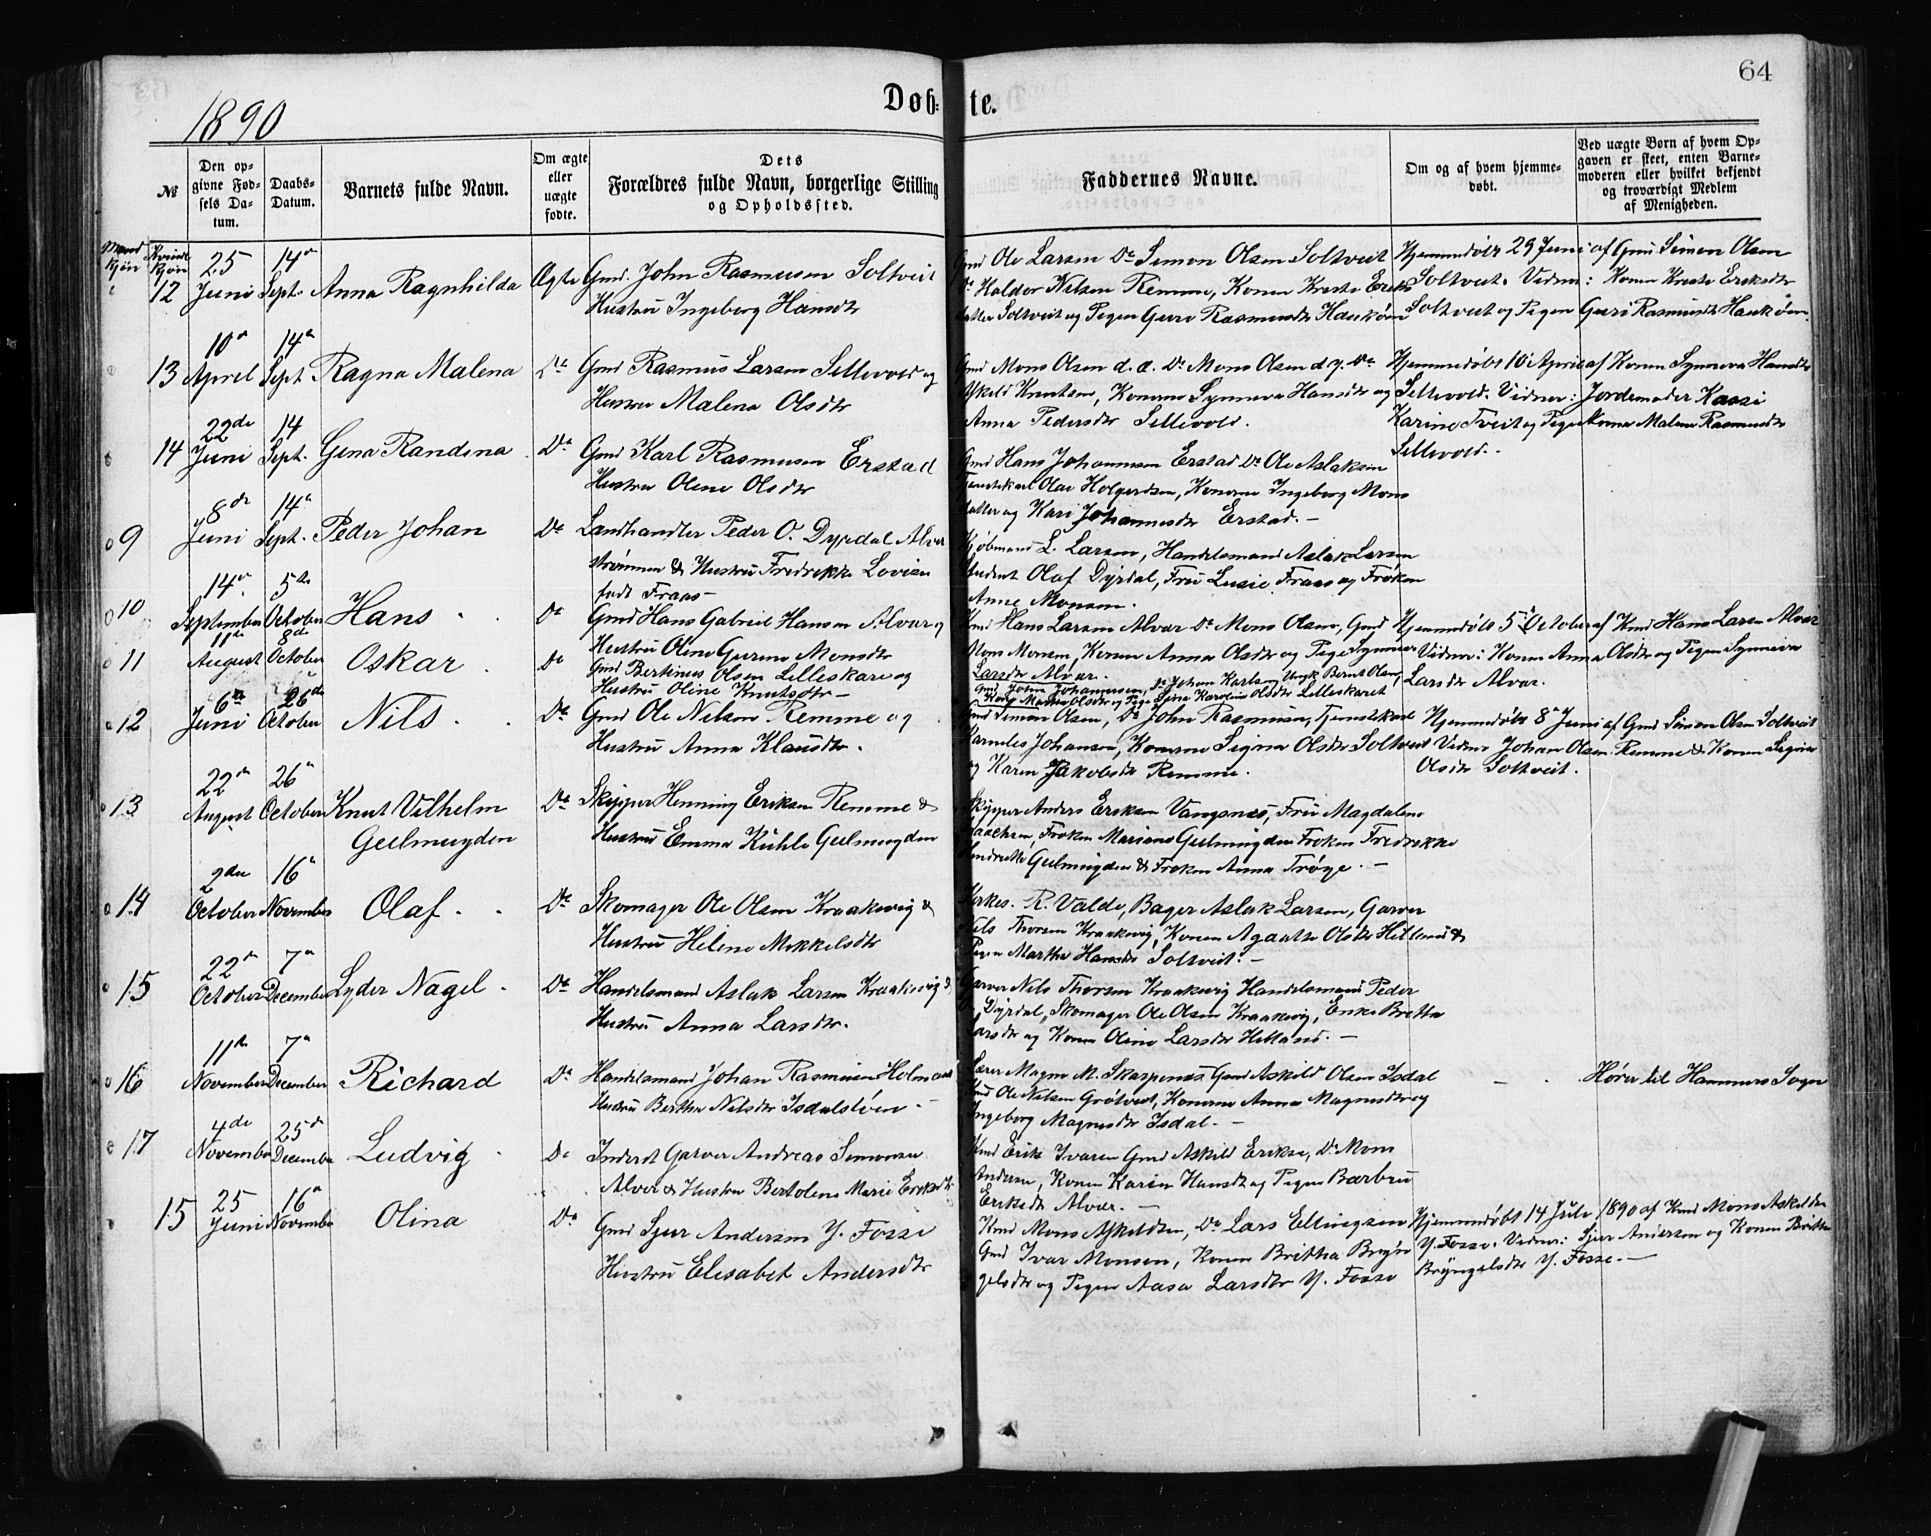 64
1890
Døb-te.
№
Den op-
givne Fød-
sels Da-
tum.
Daabs-
Datum.
Barnets fulde Navn.
Om ægte
eller
uægte
fødte.
Dets
Forældres fulde Navn, borgerlige Stilling
og Opholdssted.
Faddernes Navne.
Om og af hvem hjemme-
døbt.
Ved uægte Børn af hvem Op-
gaven er skeet, enten Barne-
moderen eller hvilket bekjendt
og troværdigt Medlem
af Menigheden.
Mand Kjøn
Kvinde Kjøn
12 25 Juni 14 Sept. Anna Ragnhilda Ægte Gmd. John Rasmussen Soltveit
Hustru Ingeborg Hansdtr
Gmd Ole Larsen Do Simon Olsen Soltveit
Do Haldor Nilsen Remme, Konen Kresti Eriks
datter Soltveit og Pigen Guri Rasmusdtr Haukøen
Hjemmedøbt 29 Juni af Gmd Simon Olsen
Soltveit. Vidner: Konen Kresti Eriksdtr
Soltveit og Pigen Guri Rasmusdtr Haukøen.
13 10 April 14 Sept Ragna Malena Do Gmd Rasmus Larsen Sellevold og
Hustru Malena Olsdtr
Gmd Mons Olsen d.æ. Do Mons Olsen d.y. Do
Askild Knutsen, Konerne Synneva Hansdtr og
Anna Pedersdtr Sellevold.
Hjemmedøbt 10 April af Konen Synneva Hansdtr
Sellevold. Vidner: Jordemoder Kassi
Karine Tveit og Pige Anna Malene Rasmusdtr
Sellevold.
14 22de Juni 14 Sept. Gina Randina Do Gmd Karl Rasmussen Erstad
Hustru Oline Olsdtr
Gmd Hans Johannesen Erstad Do Ole Aslaksen
Tjenestekarl Olai Holgersen, Konerne Ingeborg Mons
datter og Kari Johannesdtr Erstad.
9 8de Juni 14 Sept. Peder Johan Do Landhandler Peder O. Dyrdal Alver
strømmen & Hustru Fredrikke Lovise
født Fraas
Kjøbmand L. Larsen, Handelsmand Aslak Larsen
Student Olaf Dyrdal, Frü Lusie Fraas og Frøken
Anne Monsen.
10 14 September 5te October Hans Do Gmd Hans Gabriel Hansen Alver og
Hustru Oline Gurine Monsdtr
Kmd Hans Larsen Alver Do Mons Olsen, Gmd
Mons Monsen, Konen Anna Olsdtr og Pige Synneva
Larsdtr Alver.
Hjemmedøbt 5 October af Kmd Hans Larsen Alver
Vidner: Konen Anna Olsdtr og Pigen Synneva
Larsdtr Alver.
11 11te August 8de October Oskar Do Gmd Bertinus Olsen Lilleskare og
Hustru Oline Knutsdtr
Gmd John Johannesen, Do Johan Karlsen Ungk Bernt Olsen,
Kone Marthe Olsdtr og Pige Gina Karoline Olsdtr Lilleskaret
12 6te Juni 26de October Nils Do Gmd Ole Nilsen Remme og
Hustru Anna Klausdtr.
Gmd Simon Olsen, Do John Rasmussen, Tjenestekarl
Karneles Johansen, Konerne Signa Olsdtr Soltveit
og Karen Jakobsdtr Remme.
Hjemmedøbt 8 Juni af Gmd Simon Olsen Soltveit
Vidner Johan Olsen Remme & Konen Signa
Olsdtr Soltveit.
13 22 August 26 October Knut Vilhelm
Geelmuyden Do Skipper Henning Eriksen Remme &
Hustru Emma Kühle Geelmuyden
Skipper Anders Eriksen Vangsnes, Frü Magdalene
Frøken Mariane Geelmuyden Frøken Fredrikke
Hendrette Geelmuyden & Frøken Anna Trøye.
14 2den October 16 November Olaf Do Skomager Ole Olsen Kraakevig &
Hustru Helene Mikkelsdtr
Kirkes. R. Valde, Bager Aslak Larsen, Garver
Nils Thorsen Kraakevig, Konen Agaatte Olsdtr Hilland &
Pigen Martha Hansdtr Soltveit.
15 22 October 7 December Lyder Nagel Do Handelsmand Aslak Larsen Kraakevig &
Hustru Anna Larsdtr.
Garver Nils Thorsen Kraakevig Handelsmand Peder
Dyrdal, Skomager Ole Olsen Kraakevig, Enke Brettha
Larsdtr og Konen Oline Larsdtr Hilland.
16 11te November 7 December Richard Do Handelsmand Johan Rasmussen Holm
Hustru Bertha Nilsdtr Isdalstøen
Lærer Magne M. Skarpenes Gmd Askild Olsen Isdal
Gmd Ole Nilsen Grøtveit, Konerne Anna Magnesdtr og
Ingeborg Magnesdtr Isdal.
Hører til Hammers Sogn
17 4de November 25 December Ludvig Do Inderst Garver Andreas Simonsen
Alver & Hustru Bertoline Marie Eriksdtr
Kmd Erik Ivarsen Gmd Askild Eriksen, Do Mons
Andersen, Konen Karen Hansdtr og Pigen Barbru
Eriksdtr Alver.
15 25 Juni 16 November Olina Do Gmd Sjur Andersen Y. Fosse
Hustru Elisabet Andersdtr
Kmd Mons Askeldsen, Do Lars Ellingsen
Gmd Ivar Monsen, Konen Britha Bryn
gelsdtr og Pigen Aasa Larsdtr Y. Fosse
Hjemmedøbt 14 Juli 1890 af Kmd Mons Askeldsen
Y. Fosse. Vidner: Sjur Andersen og Konen Britha
Bryngelsdtr Y. Fosse.